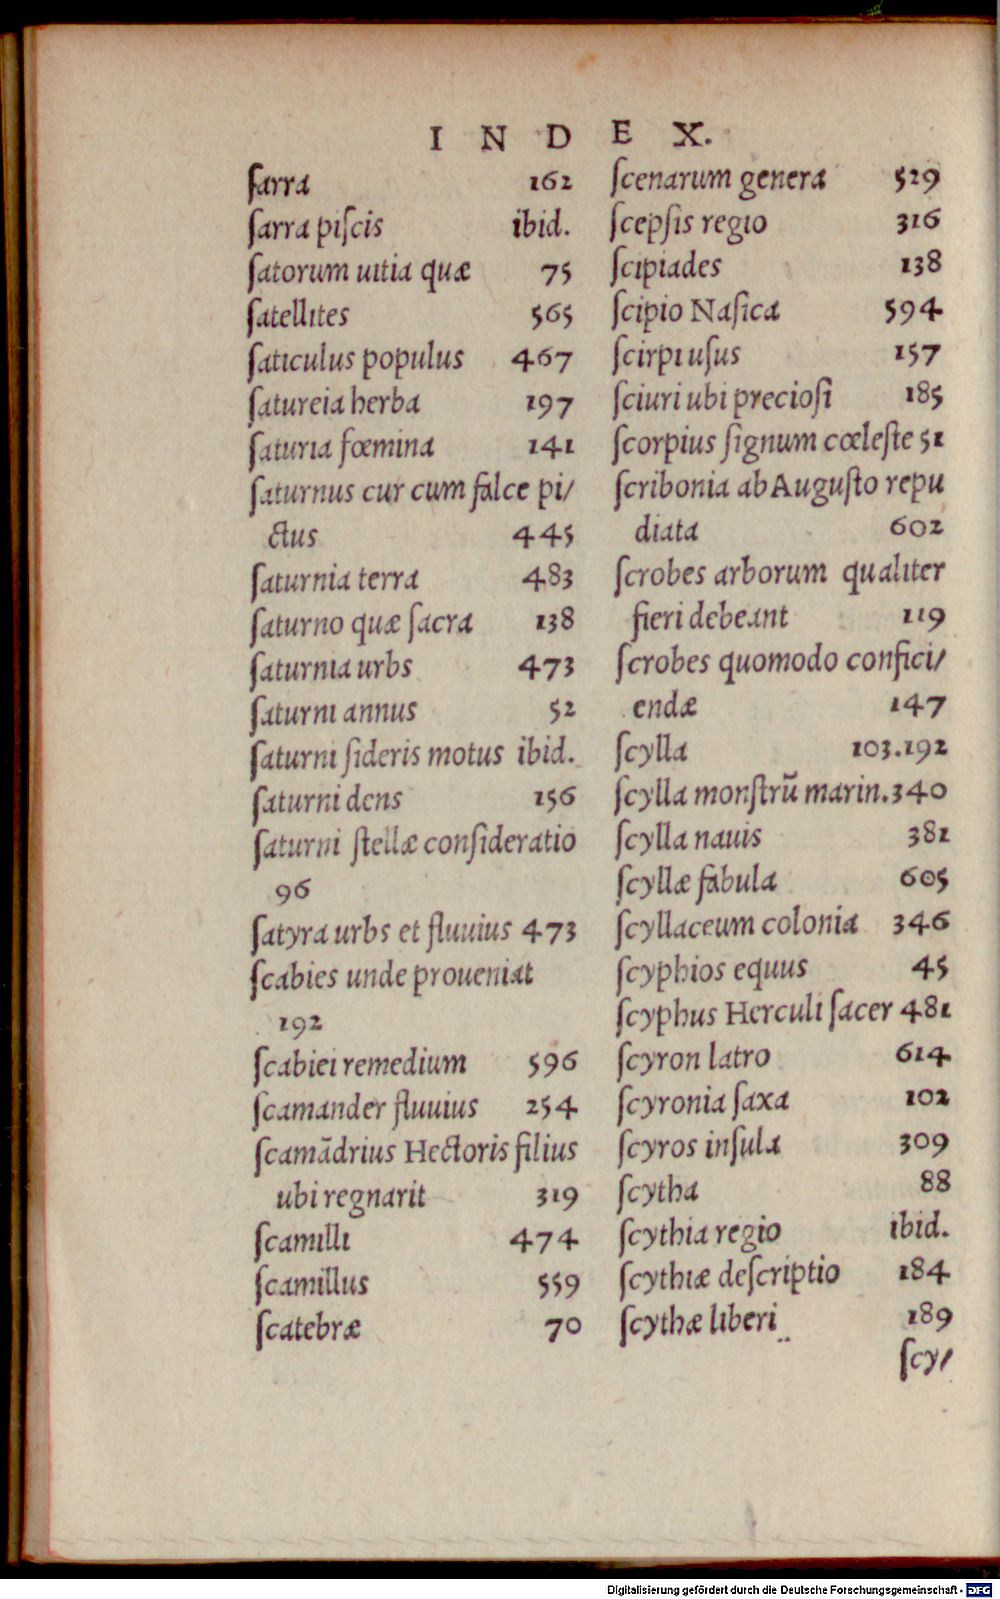 INDEX.
ſarra 162
ſarra piſcis ibid.
ſatorum uitia quæ 75
ſatellites 565
ſaticulus populus 467
ſatureia herba 197
ſaturia fœmina 141
ſaturnus cur cum falce pi/
ctus 445
ſaturnia terra 483
ſaturno quæ ſacra 138
ſaturnia urbs 473
ſaturni annus 52
ſaturni ſideris motus ibid.
ſaturni dens 156
ſaturni ſtellæ conſideratio
96
ſatyra urbs et fluuius 473
ſcabies unde proueniat
192
ſcabiei remedium 596
ſcamander fluuius 254
ſcamãdrius Hectoris filius
ubi regnarit 319
ſcamilli 474
ſcamillus 559
ſcatebræ 70
ſcenarum genera 529
ſcepſis regio 316
ſcipiades 138
ſcipio Naſica 594
ſcirpi uſus 157
ſciuri ubi precioſi 185
ſcorpius ſignum cœleſte 51
ſcribonia ab Auguſto repu
diata 602
ſcrobes arborum qualiter
fieri debeant 119
ſcrobes quomodo confici/
endæ 147
ſcylla 103.192
ſcylla monſtrũ marin. 340
ſcylla nauis 381
ſcyllæ fabula 605
ſcyllaceum colonia 346
ſcyphios equus 45
ſcyphus Herculi ſacer 481
ſcyron latro 614
ſcyronia ſaxa 102
ſcyros inſula 309
ſcytha 88
ſcythia regio ibid.
ſcythiæ deſcriptio 184
ſcythæ liberi 189
ſcy/
Digitalisierung gefördert durch die Deutsche Forschungsgemeinschaft - DFG